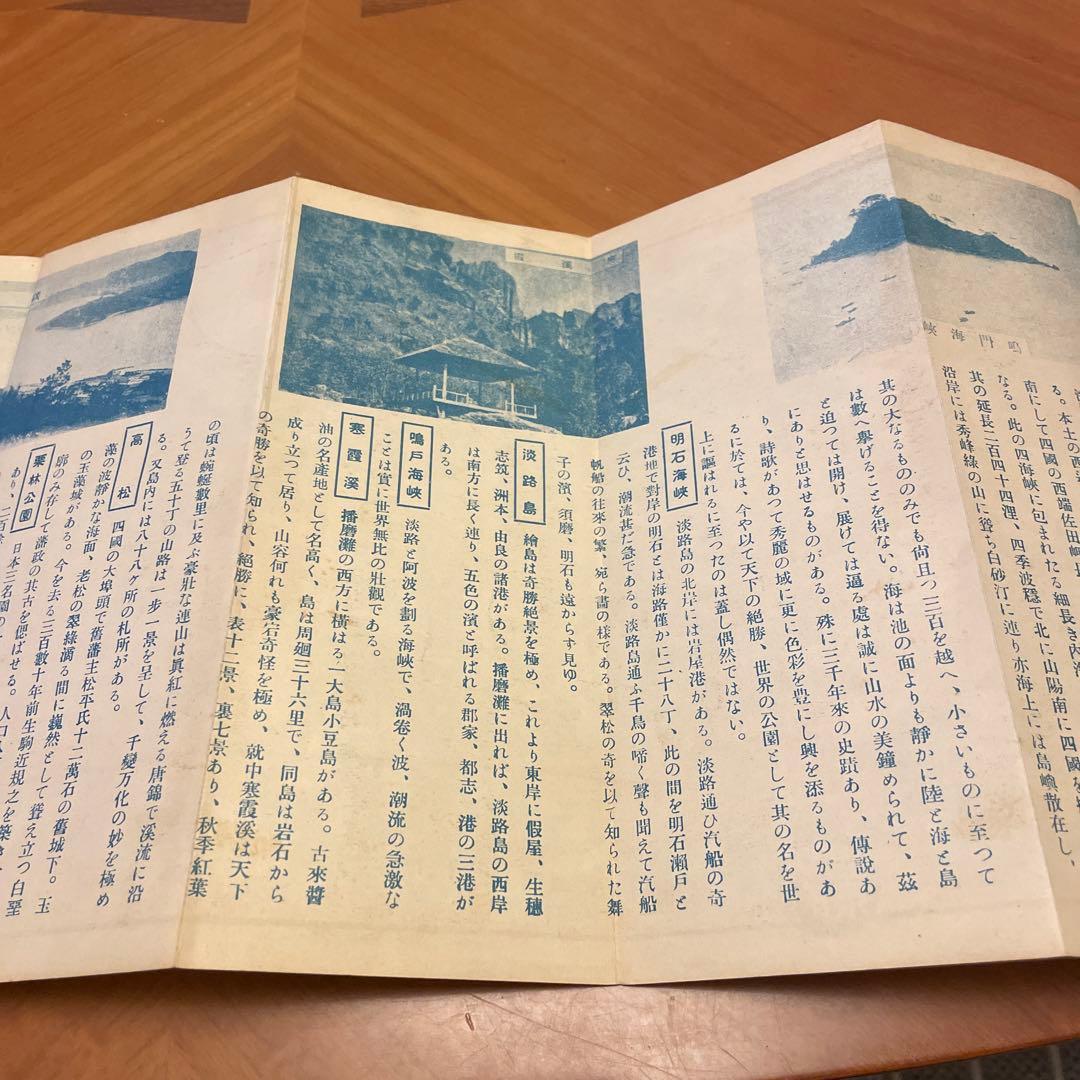 鳴門海峽
る。本土の西
南にして四國の西端佐田岬
なる。此の四海峽に包まれたる細長き內海
其の延長二百四十四浬、四季波穩で北に山陽南に四國を
沿岸には秀峰綠の山に聳ち白砂汀に連り亦海上には島嶼散在し、
其の大なるもののみでも尙且つ三百を越へ、小さいものに至つて
は數へ擧げることを得ない。海は池の面よりも靜かに陸と海と島
と迫つては開け、展けては逼る處は誠に山水の美鐘められて、茲
にありと思はせるものがある。殊に三千年來の史蹟あり、傳說あ
り、詩歌があつて秀麗の域に更に色彩を豊にし興を添るものがあ
るに於ては、今や以て天下の絕勝、世界の公園として其の名を世
上に謳はれるに至つたのは蓋し偶然ではない。
明石海峽 淡路島の北岸には岩屋港がある。淡路通ひ汽船の寄
港地で對岸の明石とは海路僅かに二十八丁、此の間を明石瀨戶と
云ひ、潮流甚だ急である。淡路島通ふ千鳥の啼く聲も聞えて汽船
帆船の往來の繁、宛ら畵の樣である。翠松の奇を以て知られた舞
子の濱、須磨、明石も遠からず見ゆ。
淡路島 繪島は奇勝絕景を極め、これより東岸に假屋、生穗
志筑、洲本、由良の諸港がある。播磨灘に出れば、淡路島の西岸
は南方に長く連り、五色の濱と呼ばれる郡家、都志、港の三港が
ある。
鳴戶海峽 淡路と阿波を劃る海峽で、渦卷く波、潮流の急激な
ことは實に世界無比の壯觀である。
寒霞溪 播磨灘の西方に橫はる一大島小豆島がある。古來醬
油の名產地として名高く、島は周廻三十六里で、同島は岩石から
成り立つて居り、山容何れも豪宕奇怪を極め、就中寒霞溪は天下
の奇勝を以て知られ、絕勝に、表十二景、裏七景あり、秋季紅葉
の頃は蜿蜒數里に及ぶ豪壯な連山は眞紅に燃える唐錦で溪流に沿
うて登る五十丁の山路は一步一景を呈して、千變万化の妙を極め
る。又島內には八十八ヶ所の札所がある。
高松 四國の大埠頭で舊藩主松平氏十二萬石の舊城下。玉
藻の波靜かな海面、老松の翠綠滴る間に巍然として聳え立つ白堊
の玉藻城がある。今を去る三百數十年前生駒近規之を築き
廓のみ存して藩政の其古を偲ばせる。人口
栗林公園 日本三名園の
あり、二百